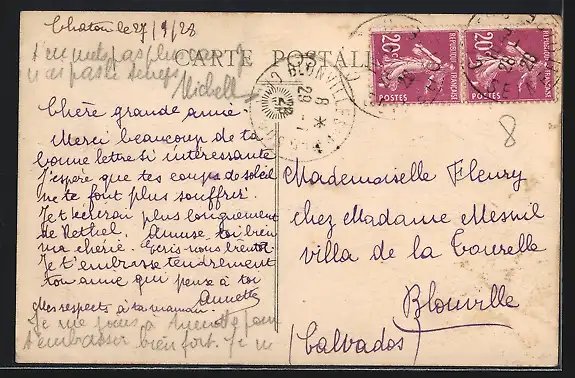 Chatou le 27/9/28
CARTE POSTALE
Michell
20c POSTES REPUBLIQUE FRANCAISE
20c POSTES REPUBLIQUE FRANCAISE
BLONVILLE S
8 *
29
28
8
Chère grande amie
Merci beaucoup de ta
bonne lettre si intéressante
J'espère que tes coups de soleil
ne te font plus souffrir.
Je t'écrirai plus longuement
de Rethel. Amuse toi bien
ma chérie. Ecris-nous bientôt.
Je t'embrasse tendrement
ton amie qui pense à toi
Annette
Mes respects à ta maman.
Je me joins à Annette pour
t'embrasser bien fort. Je
Mademoiselle Fleury
chez Madame Mesnil
villa de la Tourelle
Blonville
(Calvados)